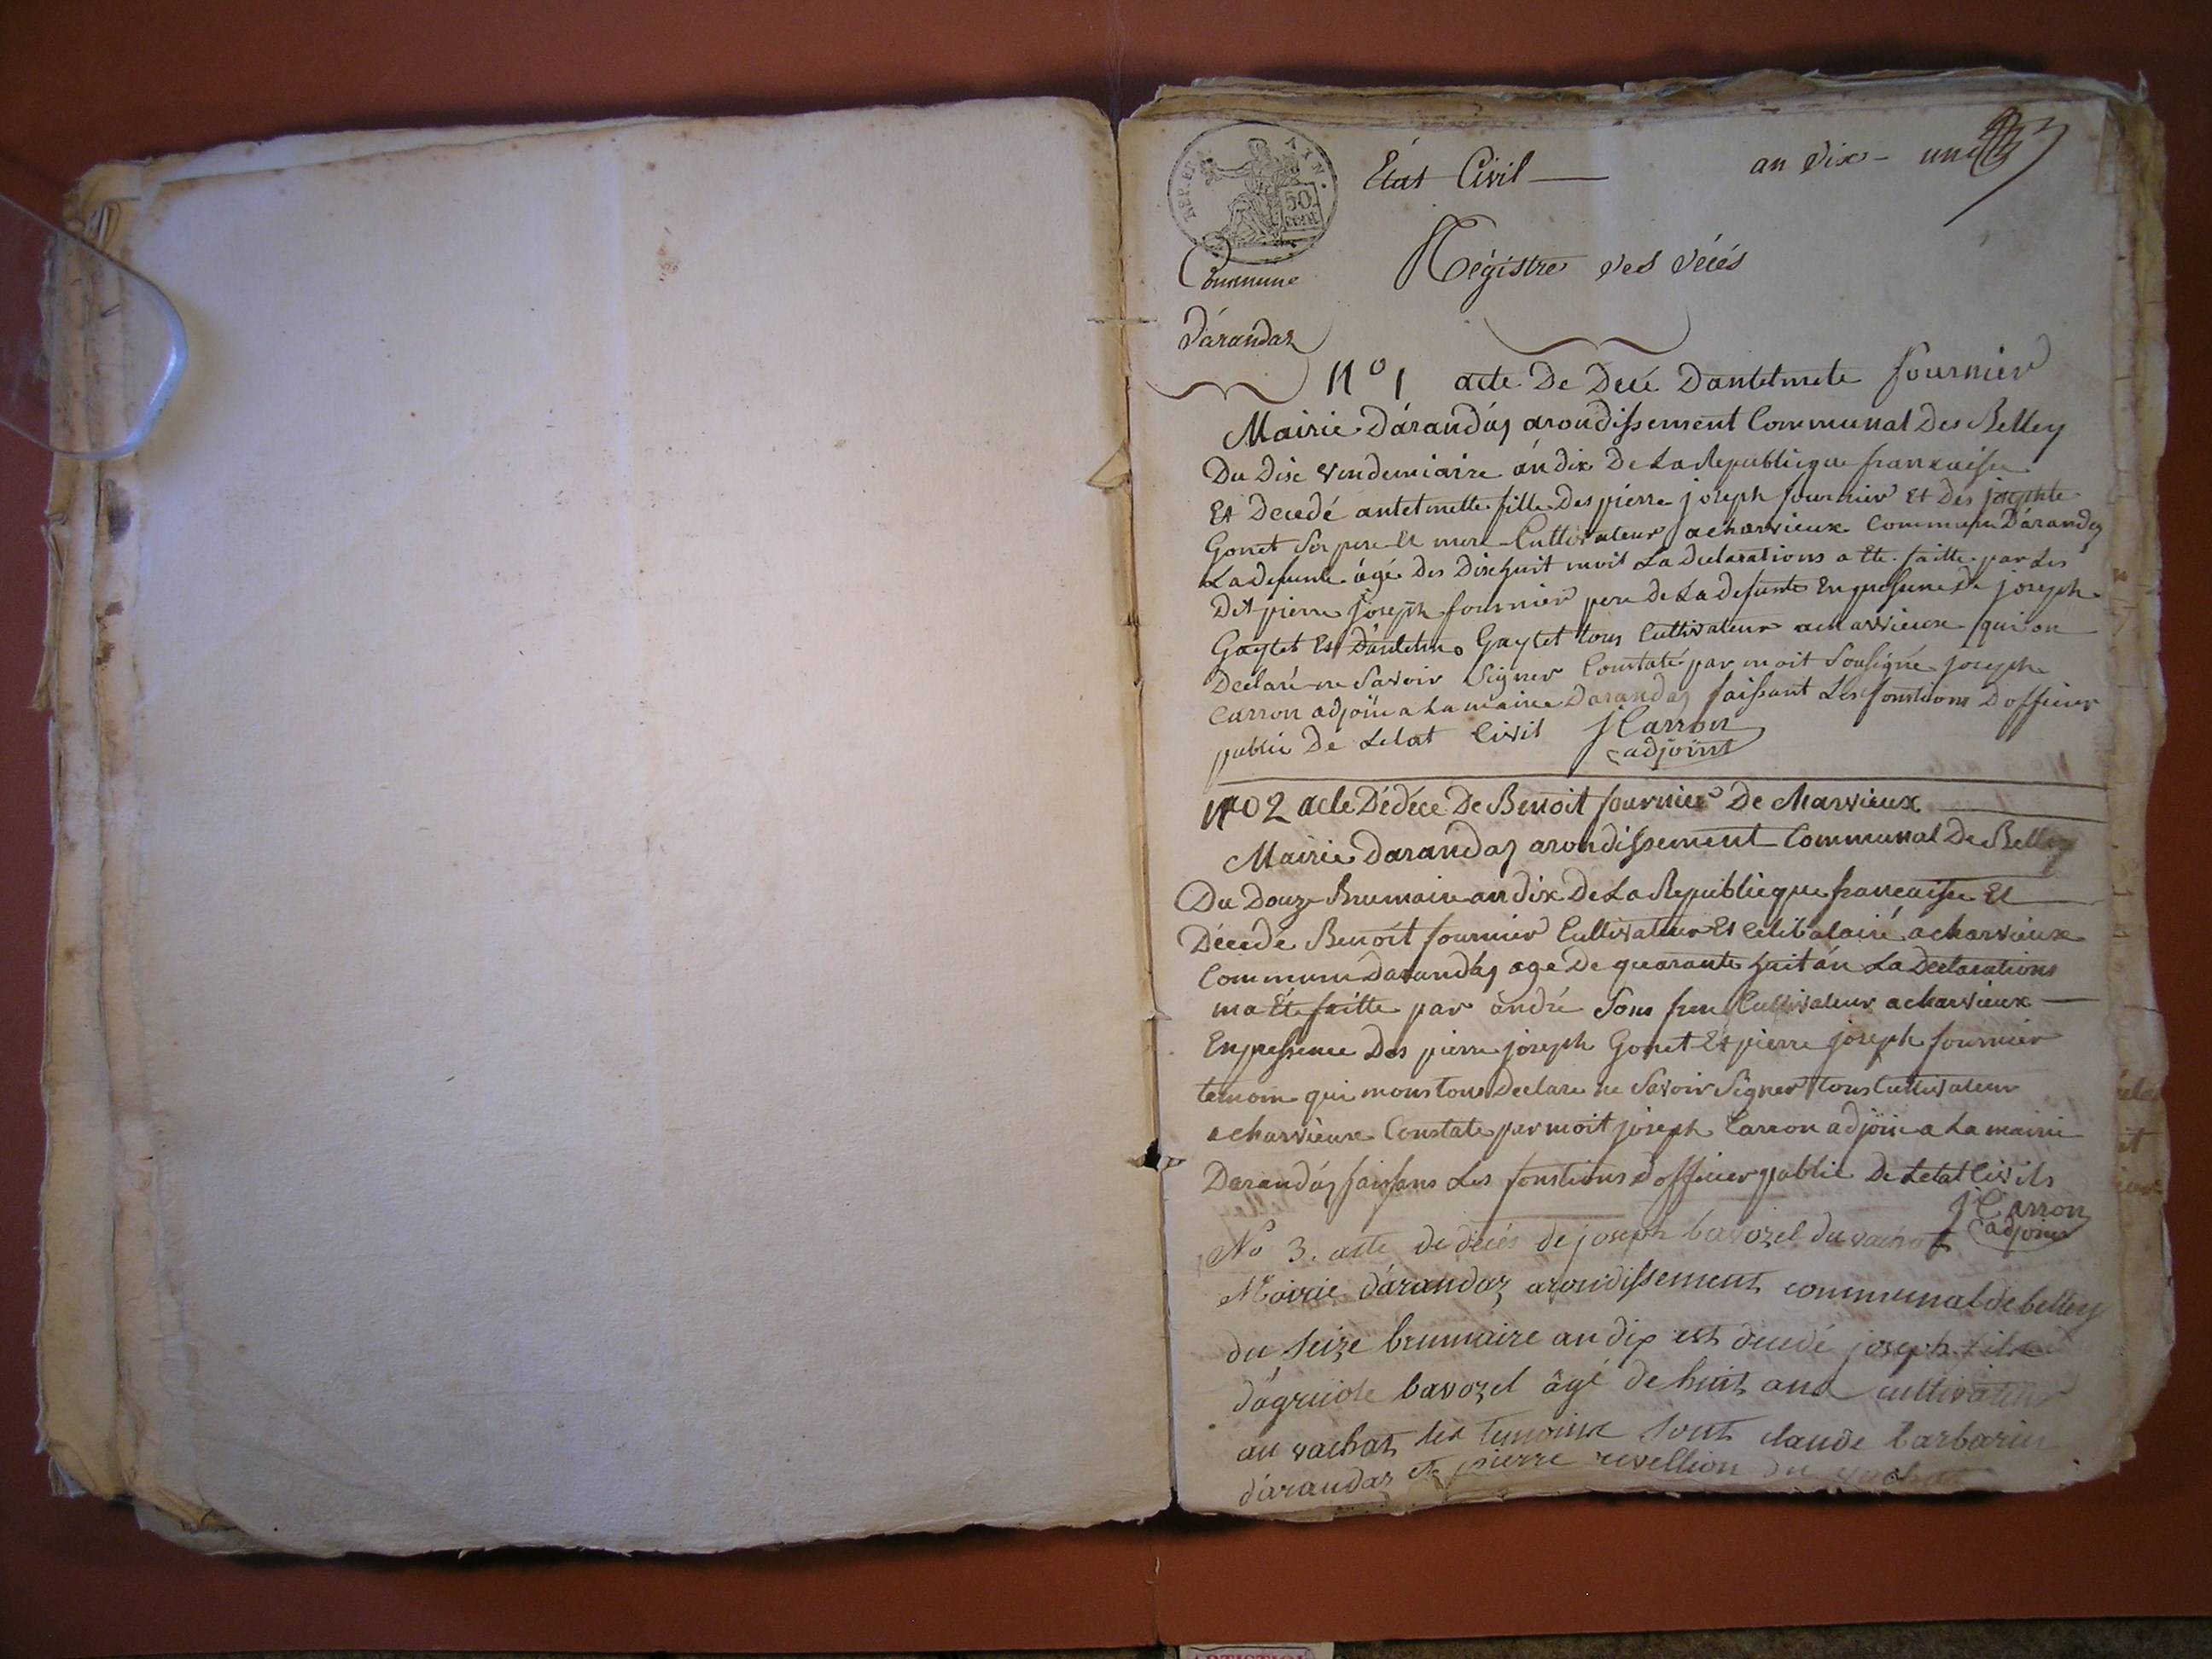 REP. FRA. AIN.
50 cent
État Civil — an dix - un
Commune
Régistre des décés
d'arandaz
N° 1 acte De Decé Dantelmete fournier
Mairie D'arandaz arondissement Communal Des Belley
Du Dix vendemiaire an dix De La Republicque francaisse
Et Decedé antelmette fille Des pierre joseph fournier Et Des josephte
Gonet Ses pere Et mere Cultivateur a charvieux Commune D'arandaz
La defunte âgé Des Dixhuit moit La Declarations a Ete faitte par Les
Det pierre joseph fournier pere de La defunte En presence De joseph
Gaytet Et D'antelmo Gaytet tous Cultivateur a charvieux qui on
Declaré ne Savoir Signer Constaté par moit Sousigné joseph
Carron adjoin a La mairie Darandaz faissant Les fonstions D officier
public De Letat Civil J Carron
adjoint
N° 2 acte Dédéce De Benoit fournier De charvieux
Mairie Darandaz arondissement Communal De Belley
Du Douze Brumaire an dix De La Republicque francaisse Et
Décedé Benoit fournier Cultivateur Et Celibataire a charvieux
Commune Darandaz age De quarante huit an La Declarations
ma Ete faitte par andré Sons frere Cultivateur a charvieux
En pressence Des pierre joseph Gonet Et pierre joseph fournier
temoin qui mons tous Declare ne Savoir Signer tous Cultivateur
a charvieux Constate par moit joseph Carron adjoin a La mairie
Darandaz faissans Les fonstions D officier public De Letat Civils
J Carron
adjoint
No 3. acte de décés de joseph bavozel du vachat
Mairie d'arandaz arondissement communal de belley
du seize brumaire an dix est decedé joseph fils
d'agricole bavozel âgé de huit ans cultivateur
au vachat les temoins sont claude barbarin
d'arandaz et pierre revellion du vachat